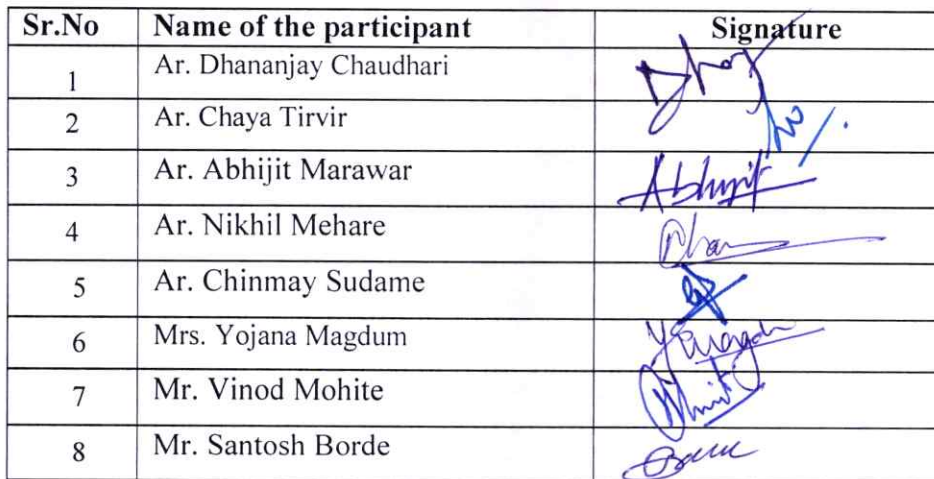 Sr.No Name of the participant Signature
1 Ar. Dhananjay Chaudhari
2 Ar. Chaya Tirvir
3 Ar. Abhijit Marawar Abhijit
4 Ar. Nikhil Mehare
5 Ar. Chinmay Sudame
6 Mrs. Yojana Magdum
7 Mr. Vinod Mohite
8 Mr. Santosh Borde